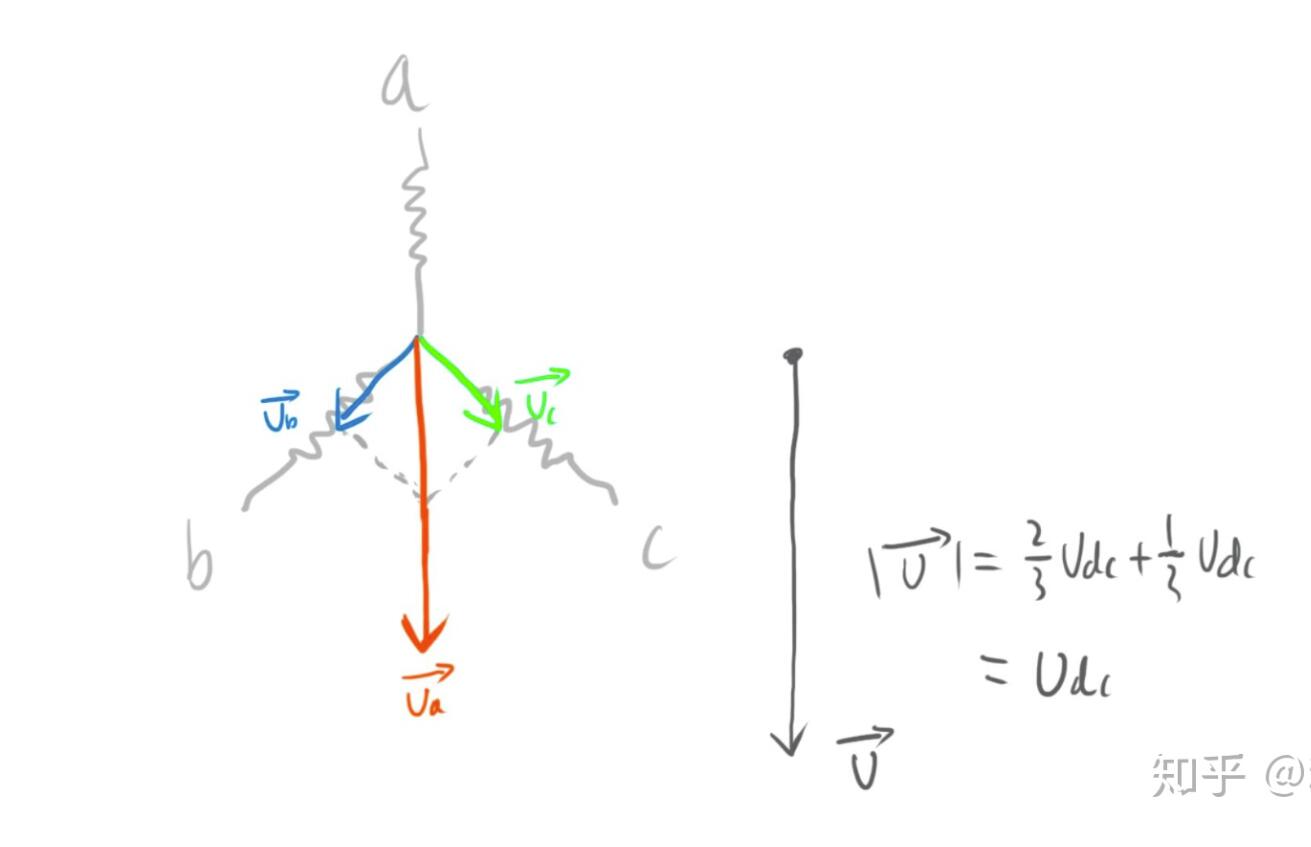 a
U⃗b
U⃗c
b
c
U⃗a
|U⃗| = 2/3 Udc + 1/3 Udc
= Udc
U⃗
知乎 @